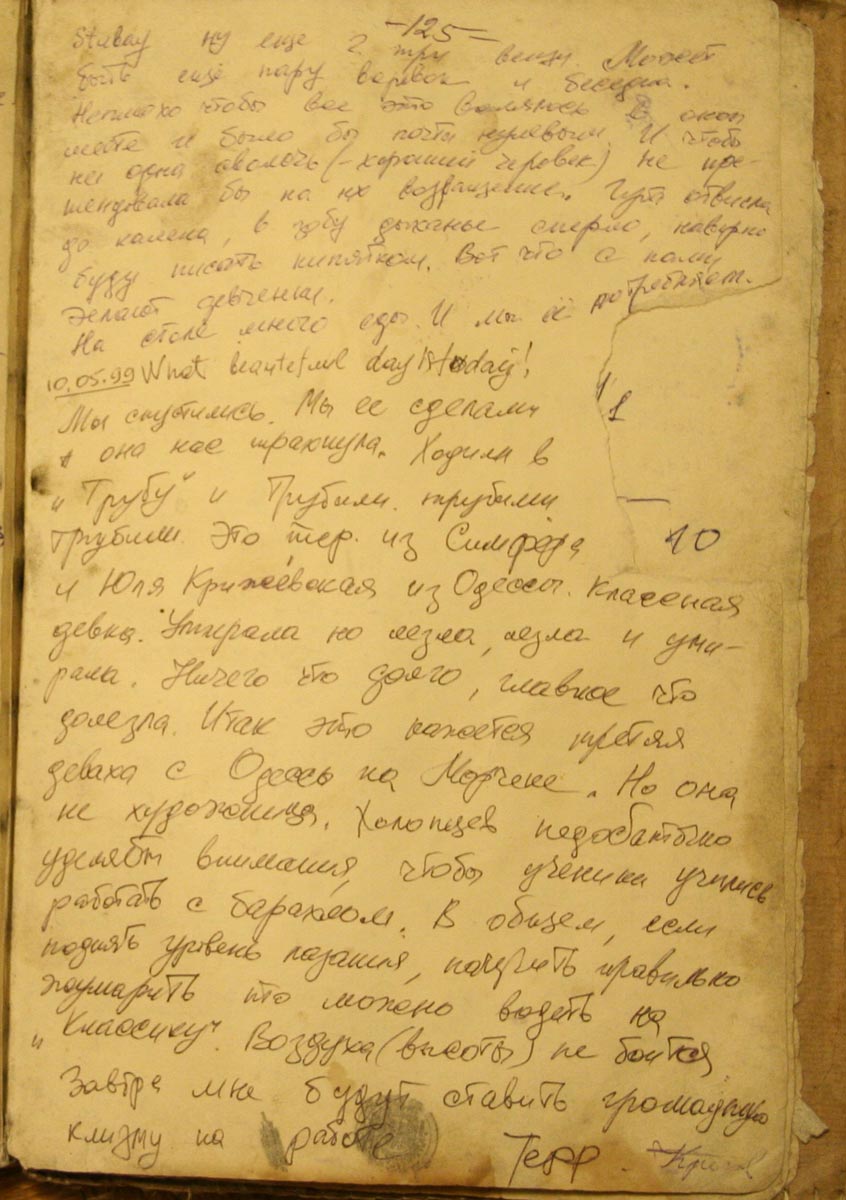 -125-
ну еще 2 три вещи. Может
быть ещё пару веревок и беседка.
Неплохо чтобы все это валялось в одном
месте и было бы почти нулевым. И чтобы
ни одна сволочь (- хороший человек) не пре-
тендовала бы на их возвращение. Губа отвисла
до колена, в зобу дыханье сперло, наверно
буду писать кипятком. Вот что с нами
делают девченки.
На столе много еды. И мы её потребляем.
10.05.99 What beauteful day is today!
Мы спустились. Мы ее сделали
и она нас трахнула. Ходили в
"Трубу" и Трубили. трубили
трубили. Это тер. из Симфера
и Юля Крижевская из Одессы. Классная
девка. Умирала но лезла, лезла и уми-
рала. Ничего что долго, главное что
долезла. Итак это кажется третяя
деваха с Одессы на Морчеке. Но она
не художница. Холопцев недостаточно
уделяет внимания, чтобы ученики учились
работать с барахлом. В общем, если
поднять уровень лазания, научить правильно
жумарить то можно водить на
"Классику". Воздуха (высоты) не боится
Завтра мне будут ставить громадную
клизму на работе
Терр.
1
10